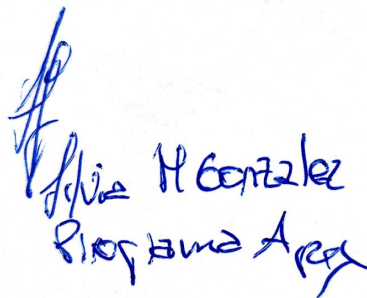 Silvia M Gonzalez
Programa